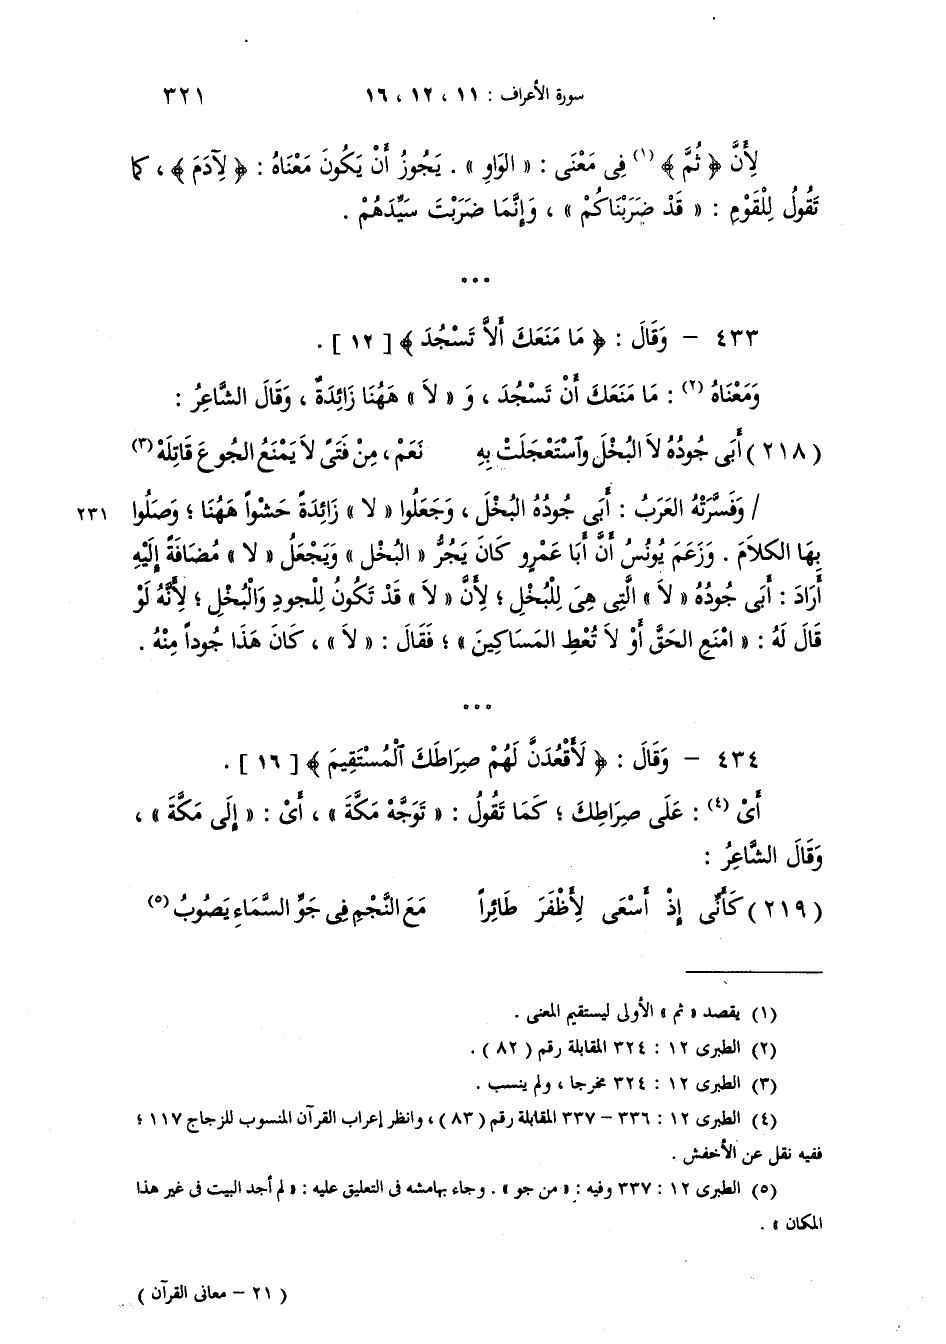 سورة الأعراف : ١١ ، ١٢ ، ١٦ ٣٢١
لِأَنَّ ﴿ ثُمَّ ﴾ (١) فِى مَعْنَى : « الوَاوِ » . يَجُوزُ أَنْ يَكُونَ مَعْنَاهُ : ﴿ لِآدَمَ ﴾ ، كما
تَقُولُ لِلْقَوْمِ : « قَدْ ضَرَبْنَاكُمْ » ، وَإِنَّمَا ضَرَبْتَ سَيِّدَهُمْ .
٤٣٣ – وَقَالَ : ﴿ مَا مَنَعَكَ أَلاَّ تَسْجُدَ ﴾ [ ١٢ ] .
وَمَعْنَاهُ (٢) : مَا مَنَعَكَ أَنْ تَسْجُدَ ، وَ « لاَ » هَهُنَا زَائِدَةٌ ، وَقَالَ الشَّاعِرُ :
( ٢١٨ ) أَبَى جُودُهُ لاَ البُخْلَ وٱسْتَعْجَلَتْ بِهِ نَعَمْ ، مِنْ فَتًى لاَ يَمْنَعُ الجُوعَ قَاتِلَهْ (٣)
/ وَفَسَّرَتْهُ العَرَبُ : أَبَى جُودُهُ البُخْلَ ، وَجَعَلُوا « لا » زَائِدَةً حَشْواً هَهُنَا ؛ وَصَلُوا ٢٣١
بِهَا الكلاَمَ . وَزَعَمَ يُونُسُ أَنَّ أَبَا عَمْرٍو كَانَ يَجُرُّ « البُخْل » وَيَجْعَلُ « لا » مُضَافَةً إِلَيْهِ
أَرَادَ : أَبَى جُودُهُ « لاَ » الَّتِى هِىَ لِلْبُخْلِ ؛ لِأَنَّ « لاَ » قَدْ تَكُونُ لِلْجودِ وَالْبُخْلِ ؛ لِأَنَّهُ لَوْ
قَالَ لَهُ : « امْنَعِ الحَقَّ أَوْ لاَ تُعْطِ المَسَاكِينَ » ؛ فَقَالَ : « لاَ » ، كَانَ هَذَا جُوداً مِنْهُ .
٤٣٤ – وَقَالَ : ﴿ لَأَقْعُدَنَّ لَهُمْ صِرَاطَكَ ٱلْمُسْتَقِيمَ ﴾ [ ١٦ ] .
أَىْ (٤) : عَلَى صِرَاطِكَ ؛ كَمَا تَقُولُ : « تَوَجَّهْ مَكَّةَ » ، أَىْ : « إِلَى مَكَّةَ » ،
وَقَالَ الشَّاعِرُ :
( ٢١٩ ) كَأَنِّى إِذْ أَسْعَى لِأَظْفَرَ طَائِراً مَعَ النَّجْمِ فِى جَوِّ السَّمَاءِ يَصُوبُ (٥)
(١) يقصد « ثم » الأولى ليستقيم المعنى .
(٢) الطبرى ١٢ : ٣٢٤ المقابلة رقم ( ٨٢ ) .
(٣) الطبرى ١٢ : ٣٢٤ مخرجا ، ولم ينسب .
(٤) الطبرى ١٢ : ٣٣٦ – ٣٣٧ المقابلة رقم ( ٨٣ ) ، وانظر إعراب القرآن المنسوب للزجاج ١١٧ ؛
ففيه نقل عن الأخفش .
(٥) الطبرى ١٢ : ٣٣٧ وفيه : « من جو » . وجاء بهامشه فى التعليق عليه : « لم أجد البيت فى غير هذا
المكان » .
( ٢١ – معانى القرآن )